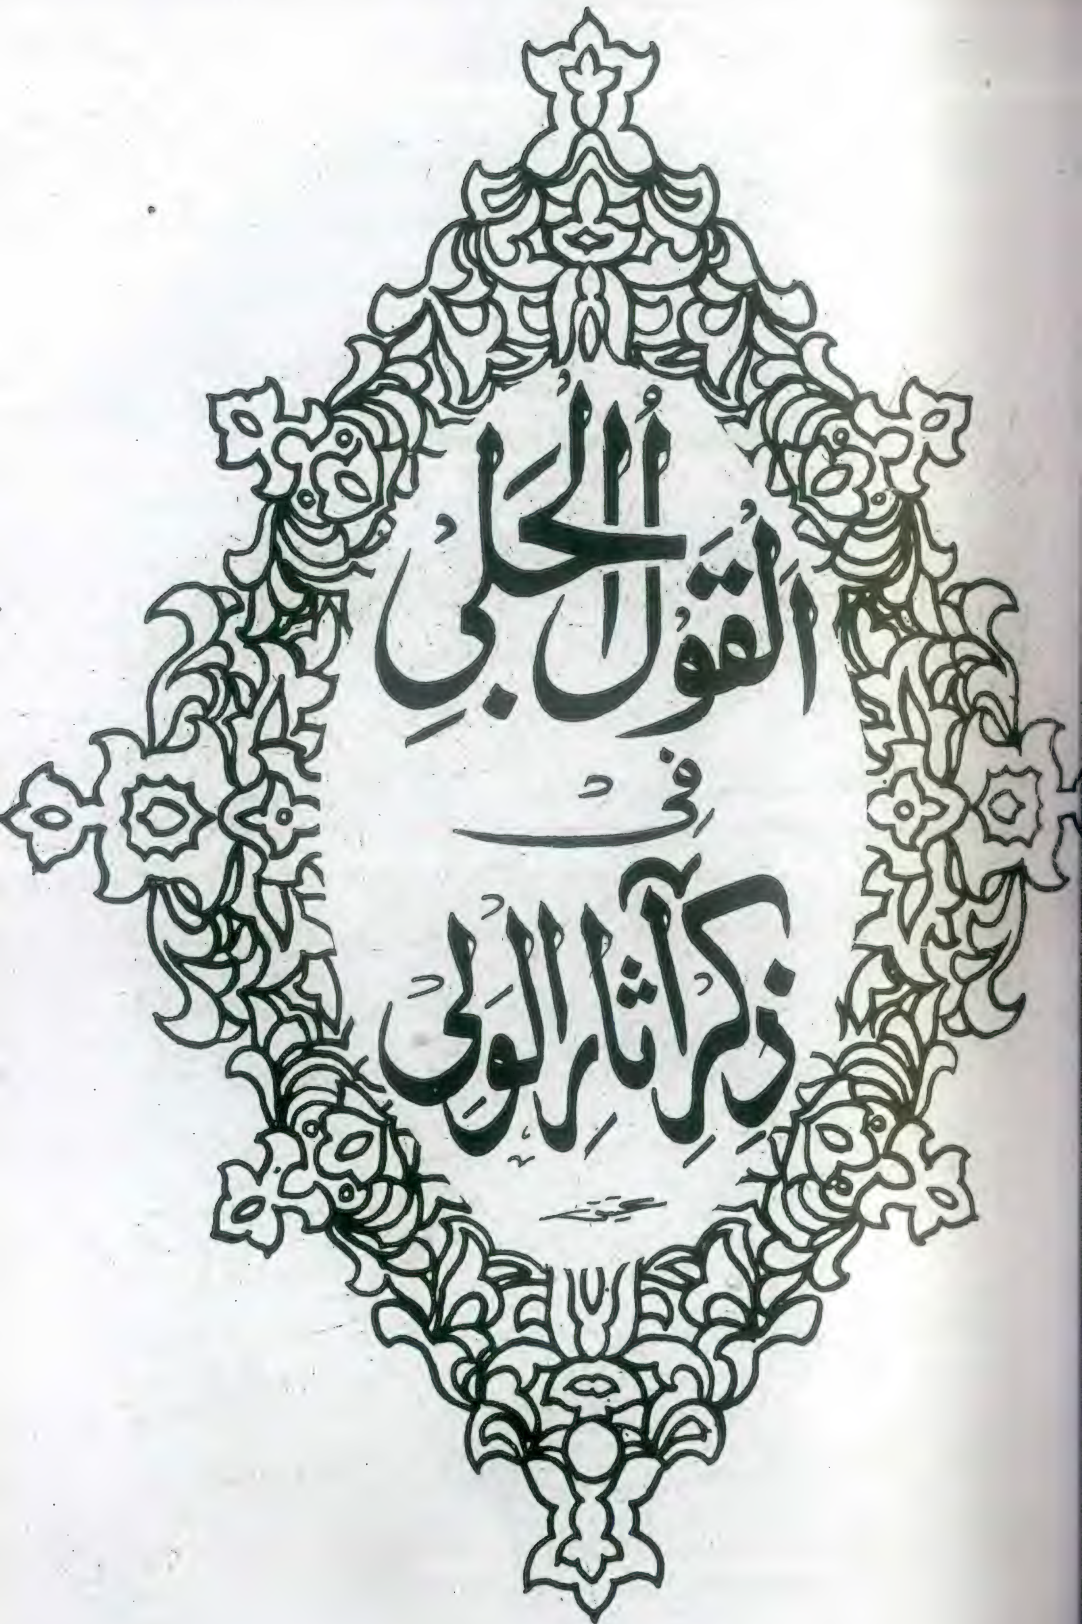 اَلْقَوْلُ الْجَلِی
فِی
ذِكْرِ آثَارِ الْوَلِی